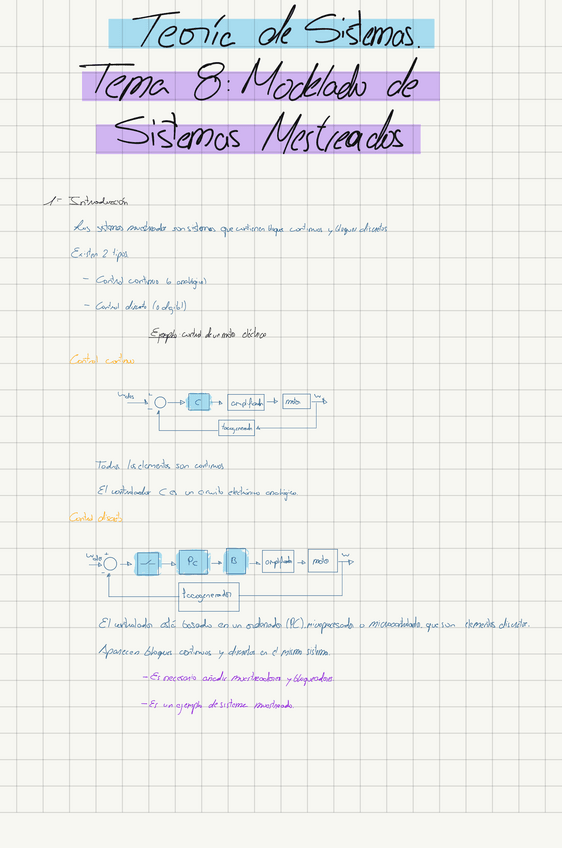 Teoría de Sistemas.
Tema 8: Modelado de
Sistemas Mestreados
1- Introducción
Los sistemas muestreados son sistemas que contienen bloques continuos y bloques discretos
Existen 2 tipos
- Control continuo (o analógico)
- Control discreto (o digital)
Ejemplo: control de un motor eléctrico
Control continuo
Wdes + - C amplificador motor w
tacogenerador
Todos los elementos son continuos
El controlador C es un circuito electrónico analógico
Control discreto
Wdes + - PC B amplificador motor w
tacogenerador
El controlador está basado en un ordenador (PC), microprocesador o microcontrolador, que son elementos discretos.
Aparecen bloques continuos y discretos en el mismo sistema.
- Es necesario añadir muestreadores y bloqueadores
- Es un ejemplo de sistema muestreado.